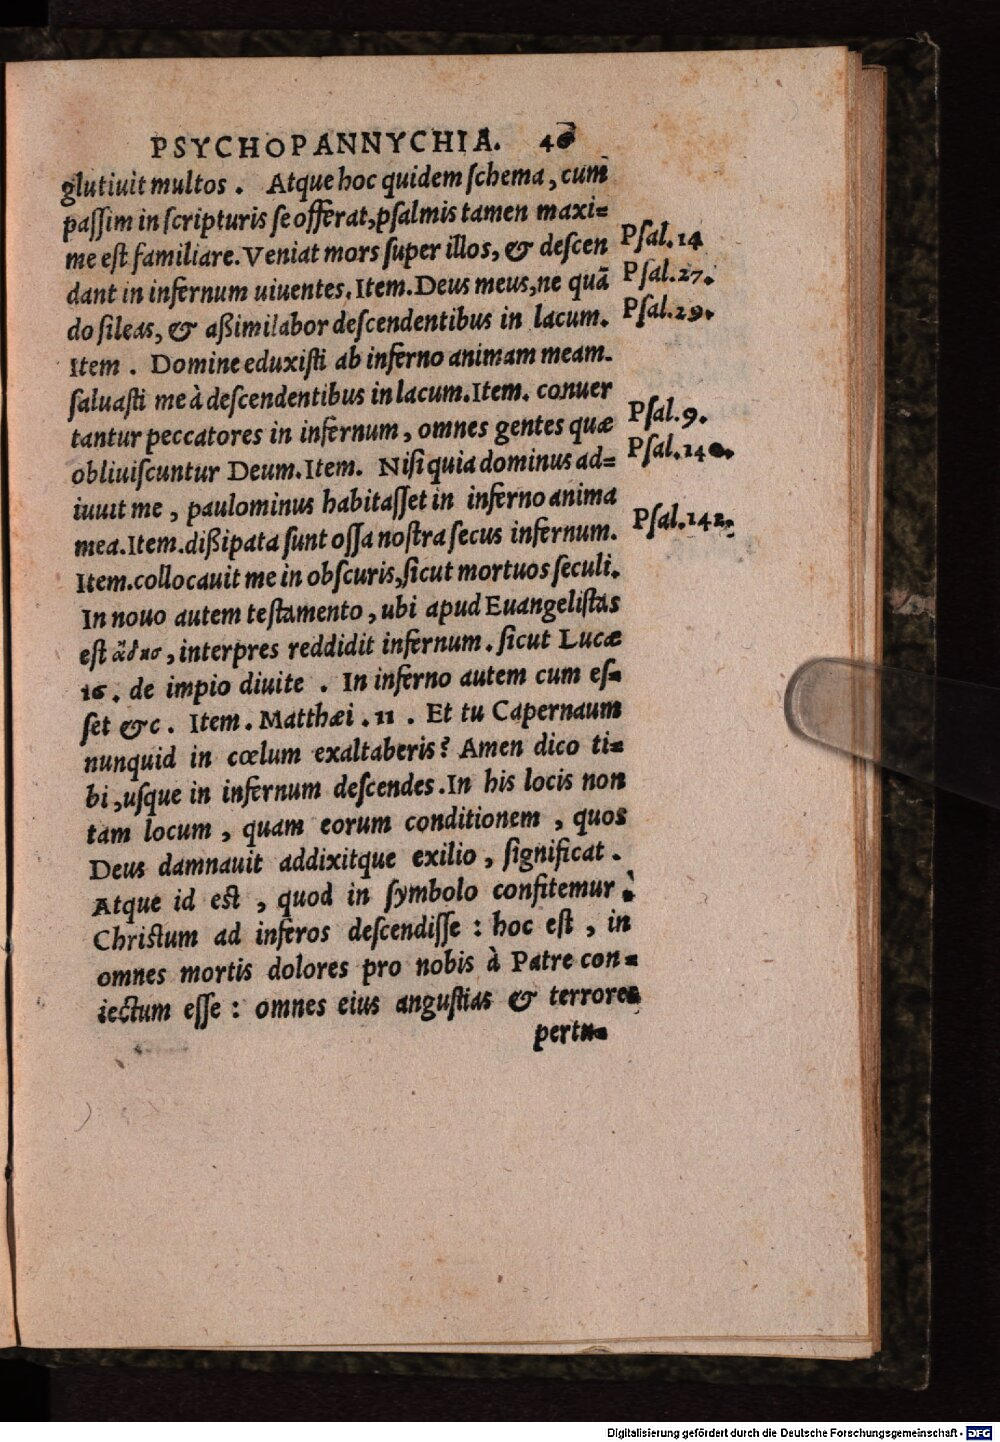 PSYCHOPANNYCHIA.
glutiuit multos . Atque hoc quidem ſchema, cum
paſſim in ſcripturis ſe offerat, pſalmis tamen maxi=
me eſt familiare. Veniat mors ſuper illos, & deſcen
Pſal. 14
dant in infernum uiuentes. Item. Deus meus, ne quā
Pſal. 27.
do ſileas, & aßimilabor deſcendentibus in lacum.
Pſal. 29.
Item . Domine eduxiſti ab inferno animam meam.
ſaluaſti me à deſcendentibus in lacum. Item. conuer
tantur peccatores in infernum, omnes gentes quæ
Pſal. 9.
obliuiſcuntur Deum. Item. Niſi quia dominus ad=
Pſal. 140.
iuuit me, paulominus habitaſſet in inferno anima
mea. Item. dißipata ſunt oſſa noſtra ſecus infernum.
Pſal. 142.
Item. collocauit me in obſcuris, ſicut mortuos ſeculi.
In nouo autem teſtamento, ubi apud Euangeliſtas
eſt , interpres reddidit infernum. ſicut Lucæ
16. de impio diuite . In inferno autem cum eſ=
ſet &c. Item. Matthæi . 11 . Et tu Capernaum
nunquid in cœlum exaltaberis? Amen dico ti=
bi, uſque in infernum deſcendes. In his locis non
tam locum, quam eorum conditionem, quos
Deus damnauit addixitque exilio, ſignificat.
Atque id eſt, quod in ſymbolo confitemur :
Chriſtum ad inferos deſcendiſſe : hoc eſt, in
omnes mortis dolores pro nobis à Patre con=
iectum eſſe : omnes eius anguſtias & terrores
pertu=
Digitalisierung gefördert durch die Deutsche Forschungsgemeinschaft - DFG